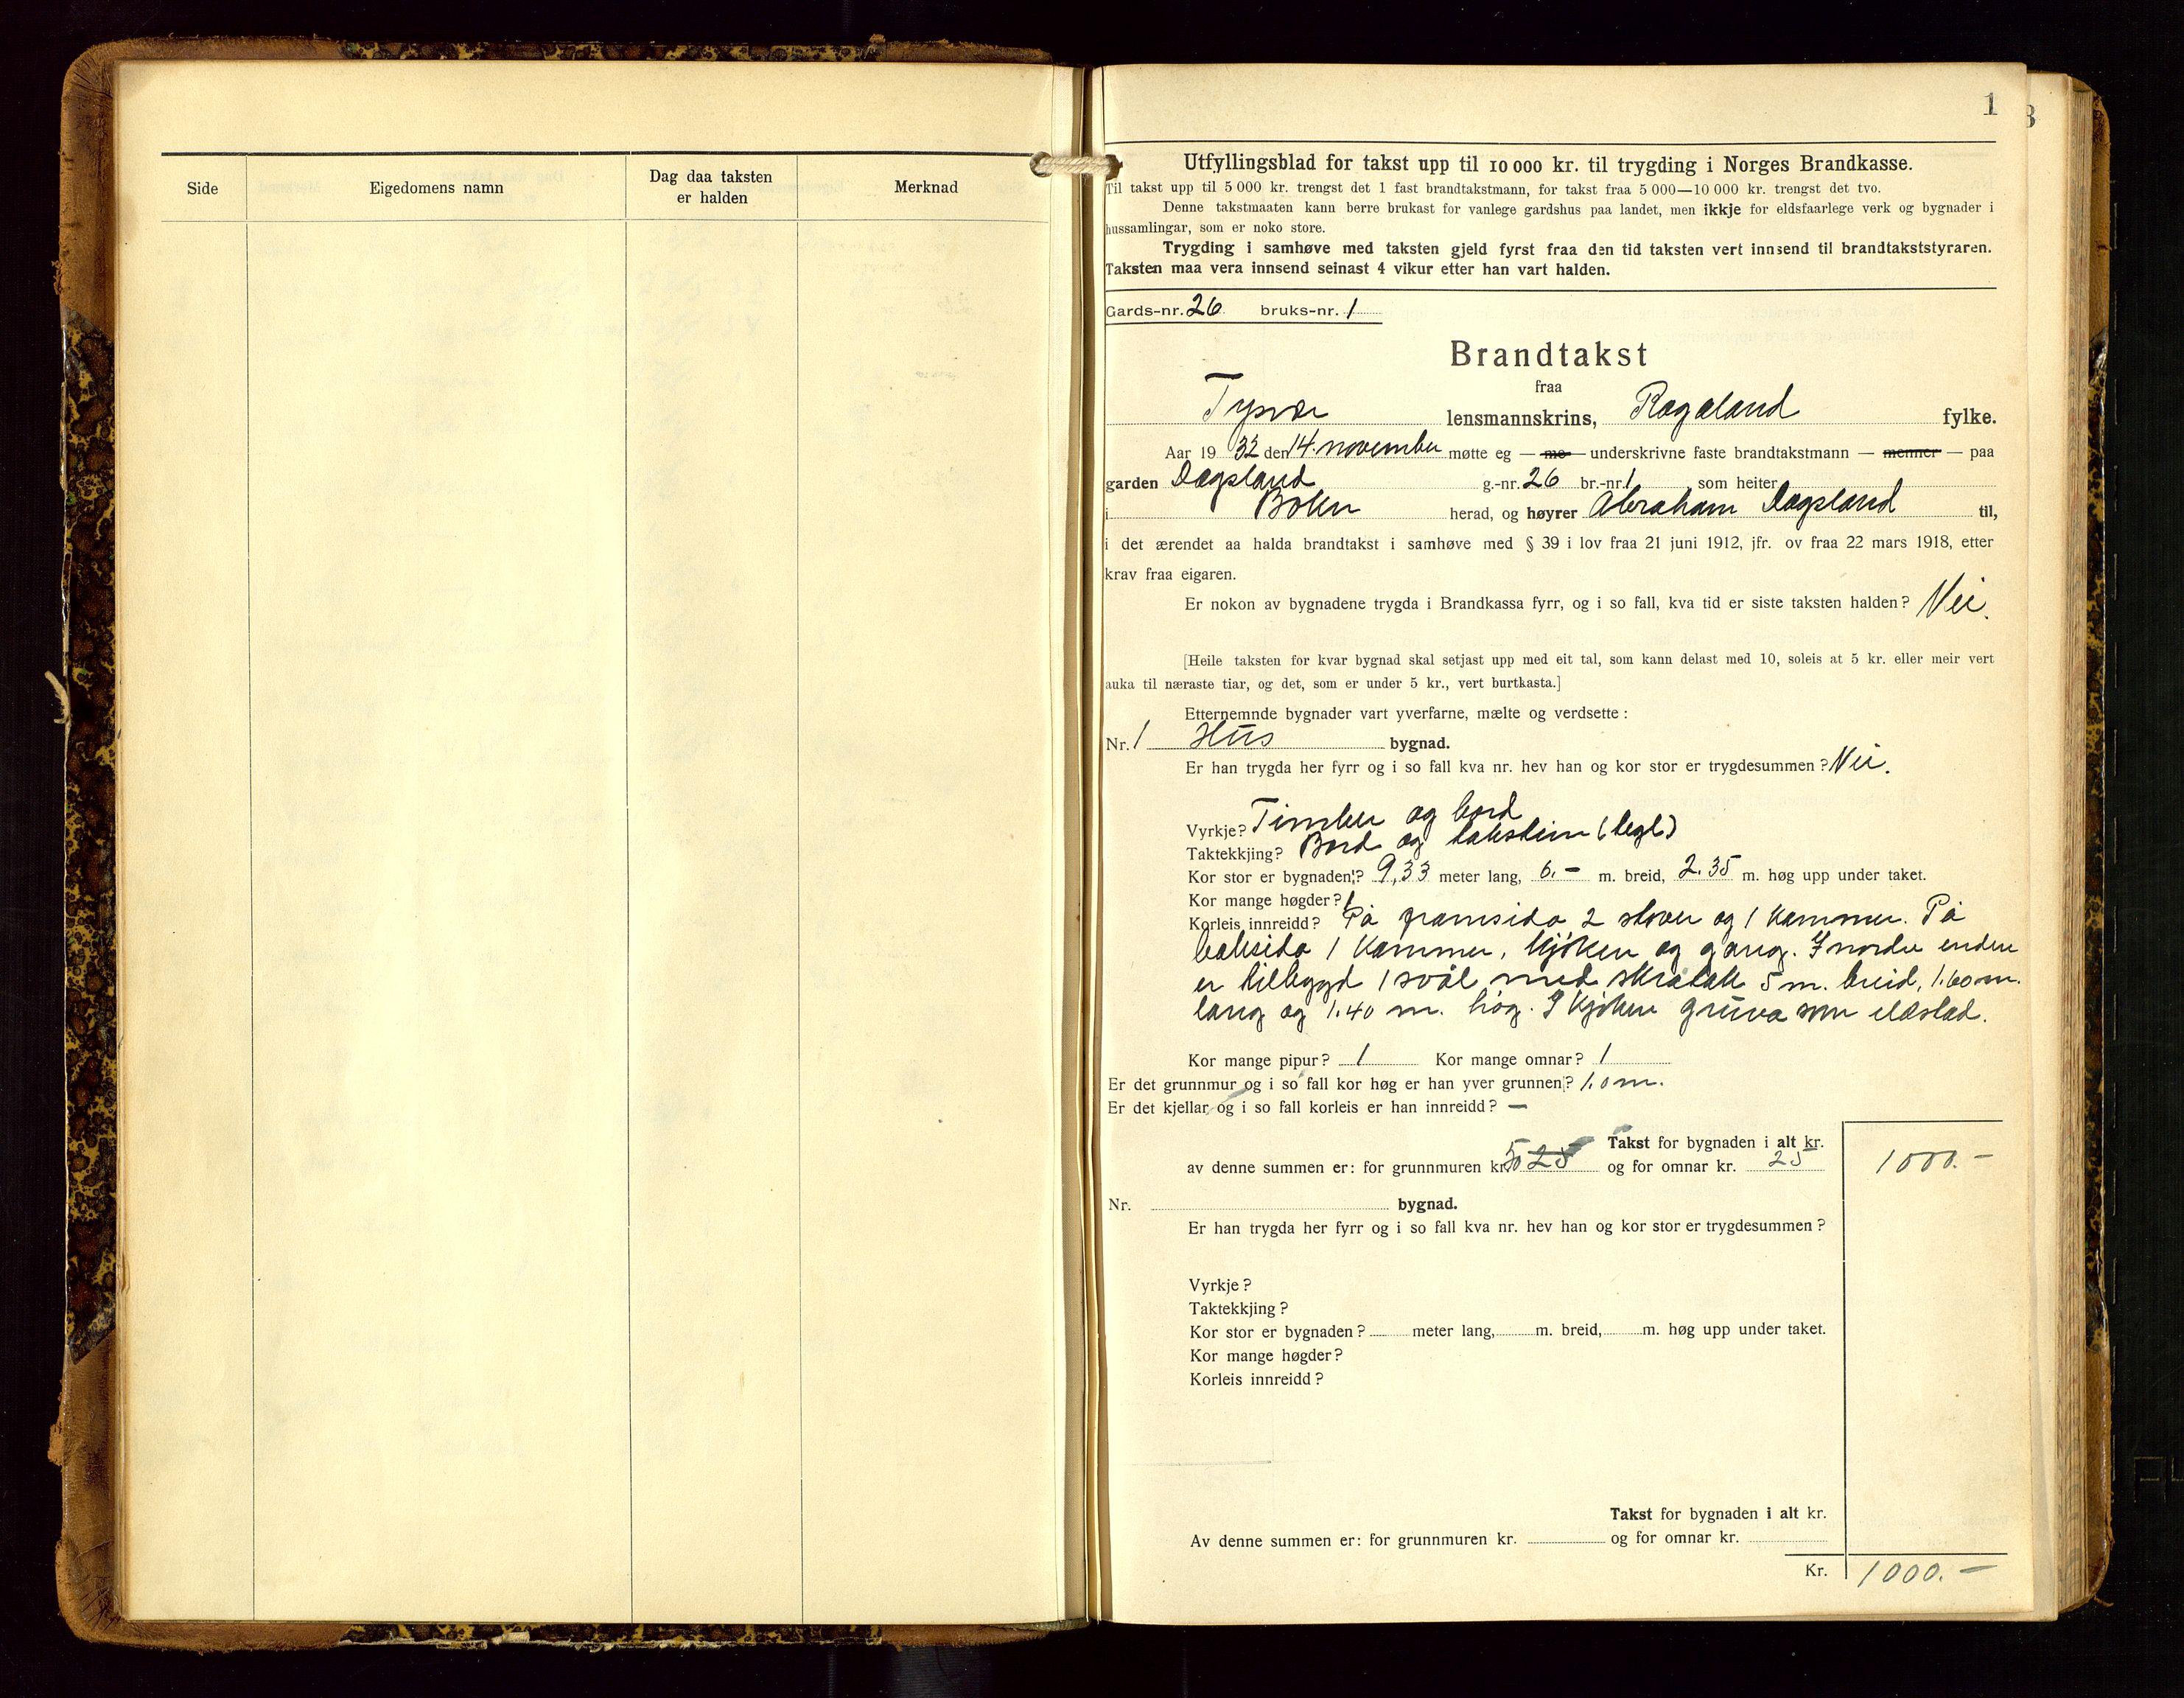 Side
Eigedomens namn
Dag daa taksten
er halden
Merknad
1
3
Utfyllingsblad for takst upp til 10 000 kr. til trygding i Norges Brandkasse.
Til takst upp til 5 000 kr. trengst det 1 fast brandtakstmann, for takst fraa 5 000—10 000 kr. trengst det tvo.
Denne takstmaaten kann berre brukast for vanlege gardshus paa landet, men ikkje for eldsfaarlege verk og bygnader i
hussamlingar, som er noko store.
Trygding i samhøve med taksten gjeld fyrst fraa den tid taksten vert innsend til brandtakststyraren.
Taksten maa vera innsend seinast 4 vikur etter han vart halden.
Gards-nr. 26 bruks-nr. 1
Brandtakst
fraa
Tysvær lensmannskrins, Rogaland fylke.
Aar 19 32 den 14. november møtte eg — me — underskrivne faste brandtakstmann — menner — paa
garden Dagsland g.-nr. 26 br.-nr. 1 som heiter
i Bokn herad, og høyrer Abraham Dagsland til,
i det ærendet aa halda brandtakst i samhøve med § 39 i lov fraa 21 juni 1912, jfr. ov fraa 22 mars 1918, etter
krav fraa eigaren.
Er nokon av bygnadene trygda i Brandkassa fyrr, og i so fall, kva tid er siste taksten halden? Nei.
[Heile taksten for kvar bygnad skal setjast upp med eit tal, som kann delast med 10, soleis at 5 kr. eller meir vert
auka til næraste tiar, og det, som er under 5 kr., vert burtkasta.]
Etternemnde bygnader vart yverfarne, mælte og verdsette:
Nr. 1 Hus bygnad.
Er han trygda her fyrr og i so fall kva nr. hev han og kor stor er trygdesummen? Nei.
Vyrkje? Timber og bord
Taktekkjing? Bord og takstein (tegl)
Kor stor er bygnaden? 9,33 meter lang, 6.— m. breid, 2.35 m. høg upp under taket.
Kor mange høgder? 1
Korleis innreidd? På framsida 2 stover og 1 kammer. På
baksida 1 kammer, kjøken og gang. I nordre enden
er tilbygd 1 svål med skråtak 5 m. breid, 1.60 m.
lang og 1.40 m. høg. I kjøken gruva som eldstad.
Kor mange pipur? 1 Kor mange omnar? 1
Er det grunnmur og i so fall kor høg er han yver grunnen? 1.0 m.
Er det kjellar og i so fall korleis er han innreidd? —
Takst for bygnaden i alt kr.
av denne summen er: for grunnmuren kr. 50 25 og for omnar kr. 25 1000.—
Nr. bygnad.
Er han trygda her fyrr og i so fall kva nr. hev han og kor stor er trygdesummen?
Vyrkje?
Taktekkjing?
Kor stor er bygnaden? meter lang, m. breid, m. høg upp under taket.
Kor mange høgder?
Korleis innreidd?
Takst for bygnaden i alt kr.
Av denne summen er: for grunnmuren kr. og for omnar kr.
Kr. 1000.—